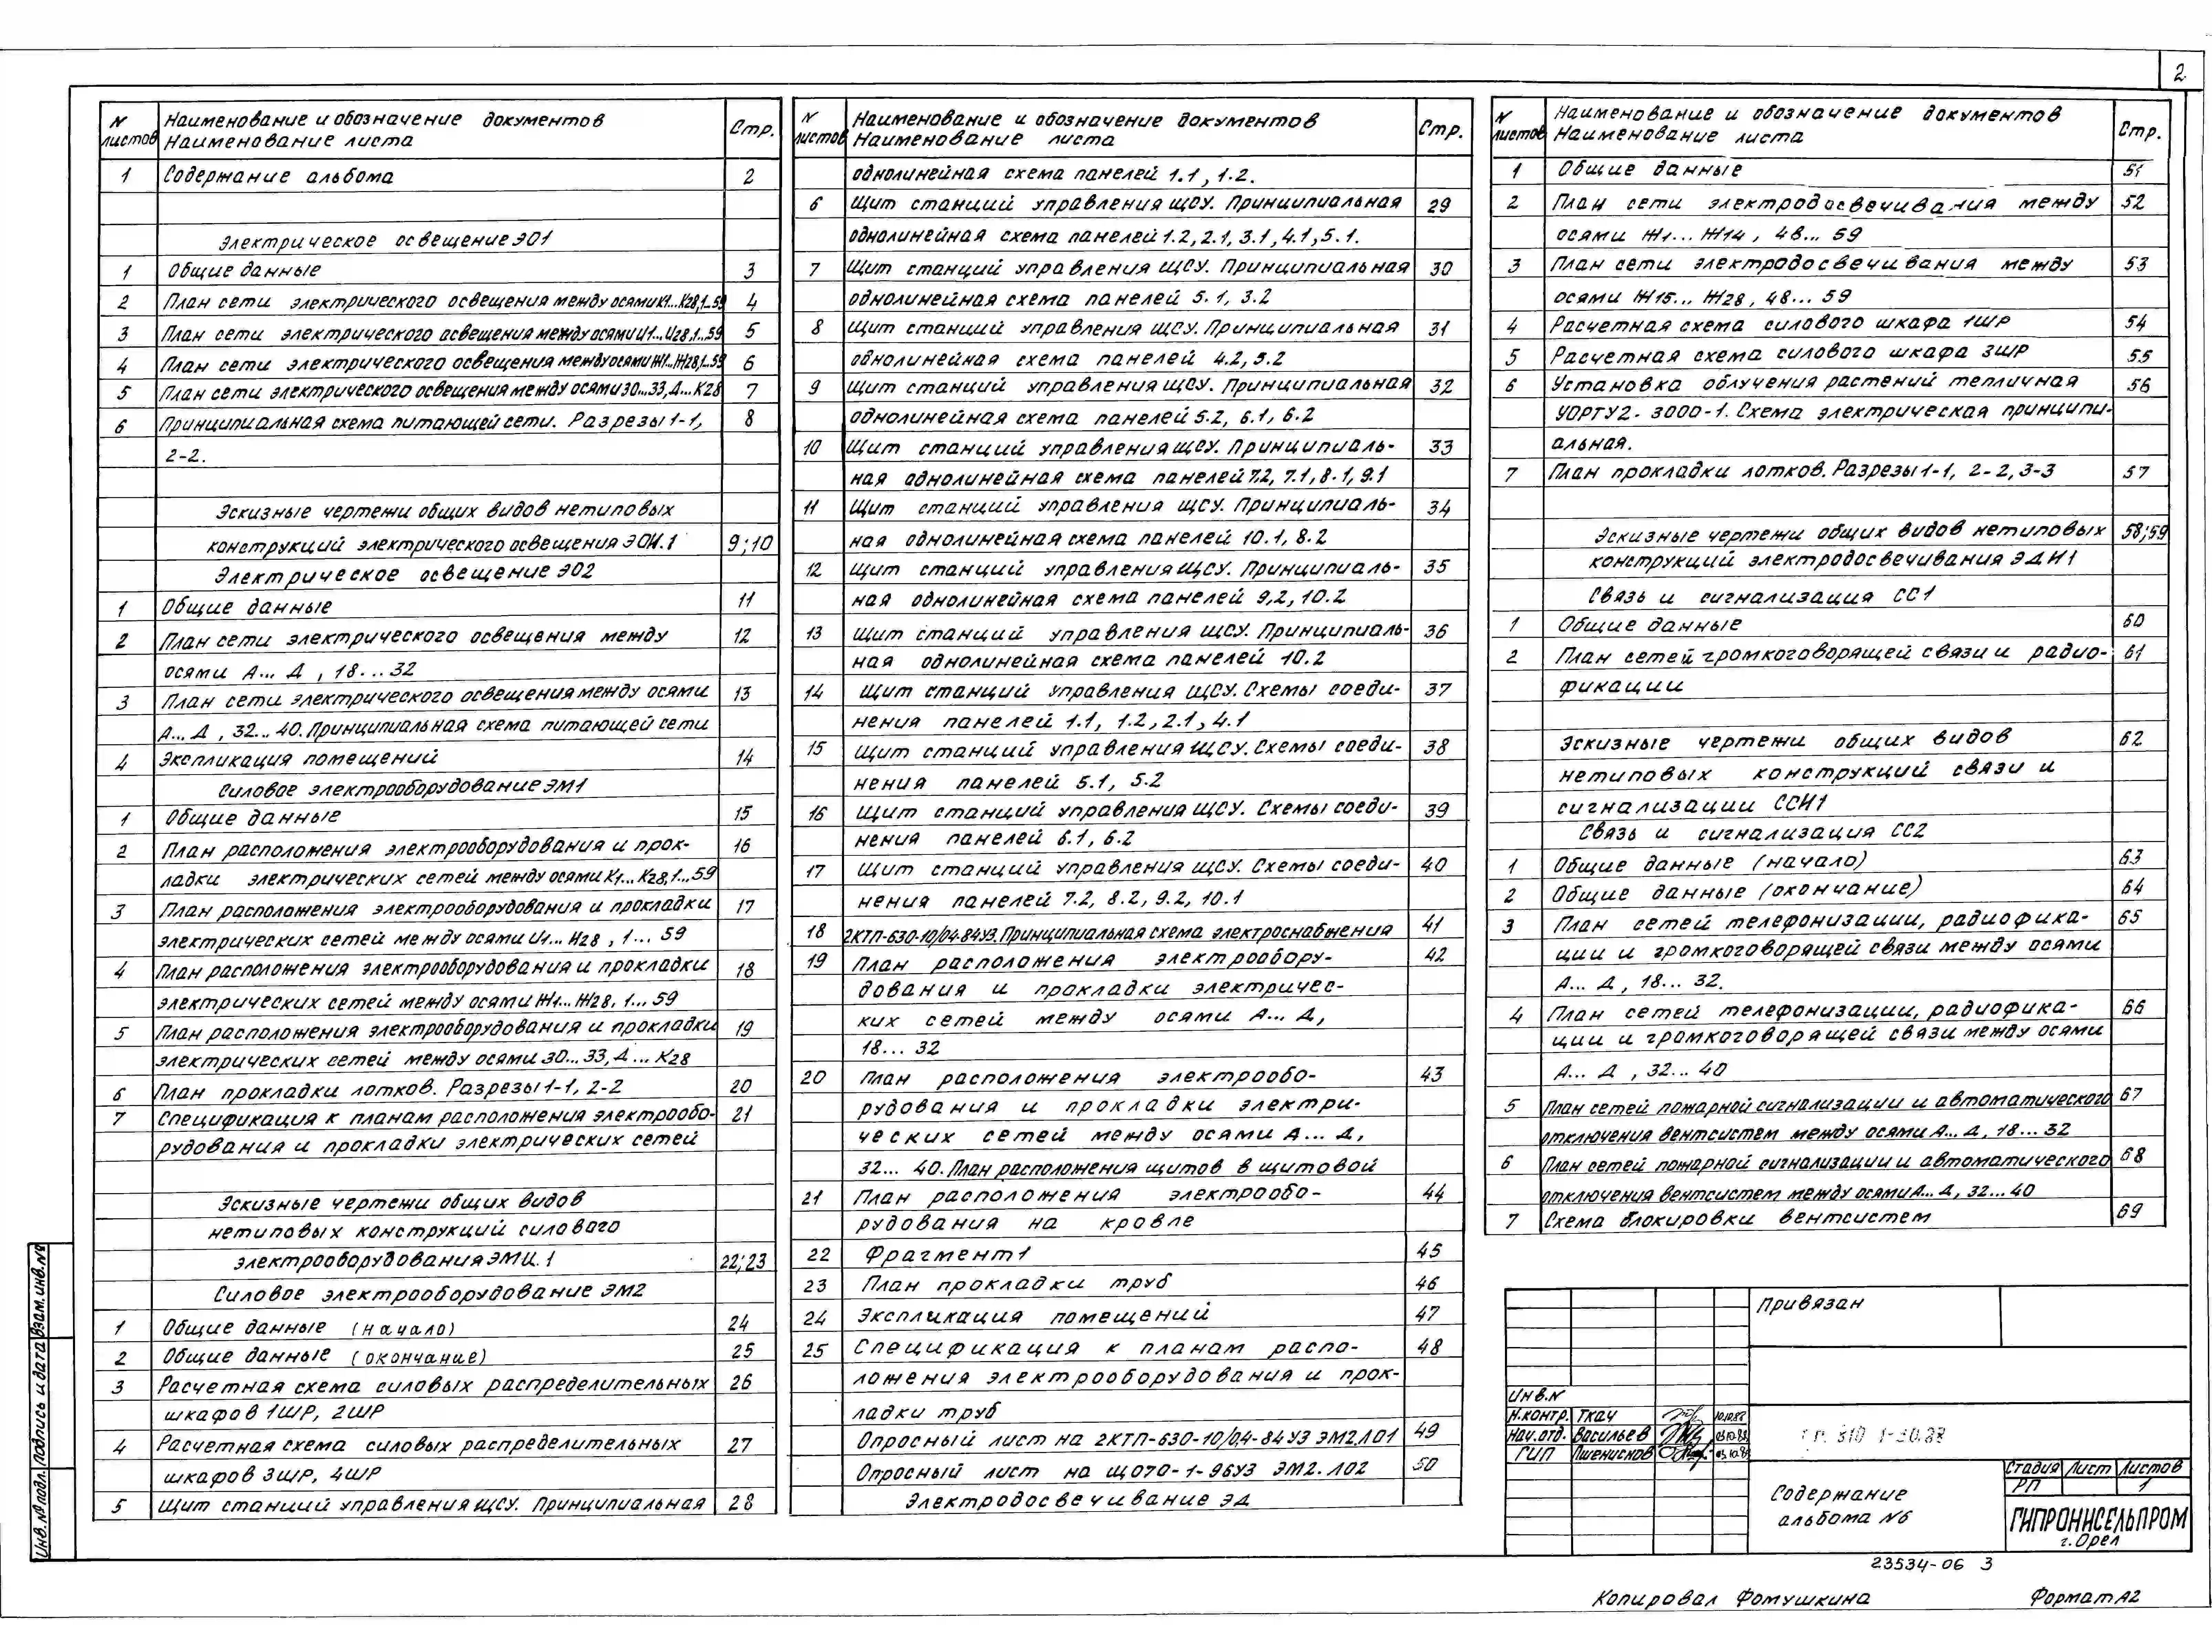 2
N листов Наименование и обозначение документов Стр.
Наименование листа
1 Содержание альбома 2
Электрическое освещение ЭО1
1 Общие данные 3
2 План сети электрического освещения между осями К1...К28,1...59 4
3 План сети электрического освещения между осями И1...И28,1...59 5
4 План сети электрического освещения между осями Ж1...Ж28,1...59 6
5 План сети электрического освещения между осями 30...33,Д...К28 7
6 Принципиальная схема питающей сети. Разрезы 1-1, 8
2-2.
Эскизные чертежи общих видов нетиповых
конструкций электрического освещения ЭОИ.1 9;10
Электрическое освещение ЭО2
1 Общие данные 11
2 План сети электрического освещения между 12
осями А... Д , 18...32
3 План сети электрического освещения между осями 13
А... Д , 32... 40. Принципиальная схема питающей сети
4 Экспликация помещений 14
Силовое электрооборудование ЭМ1
1 Общие данные 15
2 План расположения электрооборудования и прок- 16
ладки электрических сетей между осями К1...К28,1...59
3 План расположения электрооборудования и прокладки 17
электрических сетей между осями И1... И28 , 1... 59
4 План расположения электрооборудования и прокладки 18
электрических сетей между осями Ж1... Ж28, 1... 59
5 План расположения электрооборудования и прокладки 19
электрических сетей между осями 30...33, Д ... К28
6 План прокладки лотков. Разрезы 1-1, 2-2 20
7 Спецификация к планам расположения электрообо- 21
рудования и прокладки электрических сетей
Эскизные чертежи общих видов
нетиповых конструкций силового
электрооборудования ЭМИ.1 22;23
Силовое электрооборудование ЭМ2
1 Общие данные (начало) 24
2 Общие данные (окончание) 25
3 Расчетная схема силовых распределительных 26
шкафов 1ШР, 2ШР
4 Расчетная схема силовых распределительных 27
шкафов 3ШР, 4ШР
5 Щит станций управления ЩСУ. Принципиальная 28
N листов Наименование и обозначение документов Стр.
Наименование листа
однолинейная схема панелей 1.1 , 1.2.
6 Щит станций управления ЩСУ. Принципиальная 29
однолинейная схема панелей 1.2, 2.1, 3.1, 4.1, 5.1.
7 Щит станций управления ЩСУ. Принципиальная 30
однолинейная схема панелей 5.1, 3.2
8 Щит станций управления ЩСУ. Принципиальная 31
однолинейная схема панелей 4.2, 5.2
9 Щит станций управления ЩСУ. Принципиальная 32
однолинейная схема панелей 5.2, 6.1, 6.2
10 Щит станций управления ЩСУ. Принципиаль- 33
ная однолинейная схема панелей 7.2, 7.1, 8.1, 9.1
11 Щит станций управления ЩСУ. Принципиаль- 34
ная однолинейная схема панелей 10.1, 8.2
12 Щит станций управления ЩСУ. Принципиаль- 35
ная однолинейная схема панелей 9,2, 10.2
13 Щит станций управления ЩСУ. Принципиаль- 36
ная однолинейная схема панелей 10.2
14 Щит станций управления ЩСУ. Схемы соеди- 37
нения панелей 1.1, 1.2, 2.1, 4.1
15 Щит станций управления ЩСУ. Схемы соеди- 38
нения панелей 5.1, 5.2
16 Щит станций управления ЩСУ. Схемы соеди- 39
нения панелей 6.1, 6.2
17 Щит станций управления ЩСУ. Схемы соеди- 40
нения панелей 7.2, 8.2, 9.2, 10.1
18 2КТП-630-10/04-84У3. Принципиальная схема электроснабжения 41
19 План расположения электрообору- 42
дования и прокладки электричес-
ких сетей между осями А... Д,
18... 32
20 План расположения электрообо- 43
рудования и прокладки электри-
ческих сетей между осями А... Д,
32... 40. План расположения щитов в щитовой
21 План расположения электрообо- 44
рудования на кровле
22 Фрагмент 1 45
23 План прокладки труб 46
24 Экспликация помещений 47
25 Спецификация к планам распо- 48
ложения электрооборудования и прок-
ладки труб
Опросный лист на 2КТП-630-10/0,4-84У3 ЭМ2.Л01 49
Опросный лист на ЩО70-1-96У3 ЭМ2.Л02 50
Электродосвечивание ЭД
N листов Наименование и обозначение документов Стр.
Наименование листа
1 Общие данные 51
2 План сети электродосвечивания между 52
осями Ж1... Ж14 , 48... 59
3 План сети электродосвечивания между 53
осями Ж15... Ж28, 48... 59
4 Расчетная схема силового шкафа 1ШР 54
5 Расчетная схема силового шкафа 3ШР 55
6 Установка облучения растений тепличная 56
УОРТУ2-3000-1. Схема электрическая принципи-
альная.
7 План прокладки лотков. Разрезы 1-1, 2-2, 3-3 57
Эскизные чертежи общих видов нетиповых 58;59
конструкций электродосвечивания ЭДИ1
Связь и сигнализация СС1
1 Общие данные 60
2 План сетей громкоговорящей связи и радио- 61
фикации
Эскизные чертежи общих видов 62
нетиповых конструкций связи и
сигнализации ССИ1
Связь и сигнализация СС2
1 Общие данные (начало) 63
2 Общие данные (окончание) 64
3 План сетей телефонизации, радиофика- 65
ции и громкоговорящей связи между осями
А... Д , 18... 32.
4 План сетей телефонизации, радиофика- 66
ции и громкоговорящей связи между осями
А... Д , 32... 40
5 План сетей пожарной сигнализации и автоматического 67
отключения вентсистем между осями А... Д, 18... 32
6 План сетей пожарной сигнализации и автоматического 68
отключения вентсистем между осями А... Д, 32...40
7 Схема блокировки вентсистем 69
Привязан
Инв.N
Н.контр. Ткач 10.10.88
Нач.отд. Васильев 03.10.88
ГИП Пшенисков 03.10.88
810-1-30.88
Содержание
альбома №6
Стадия Лист Листов
РП 1
ГИПРОНИСЕЛЬПРОМ
г. Орел
23534-06 3
Копировал Фомушкина Формат А2
Инв.№ подл. Подпись и дата Взам.инв.№